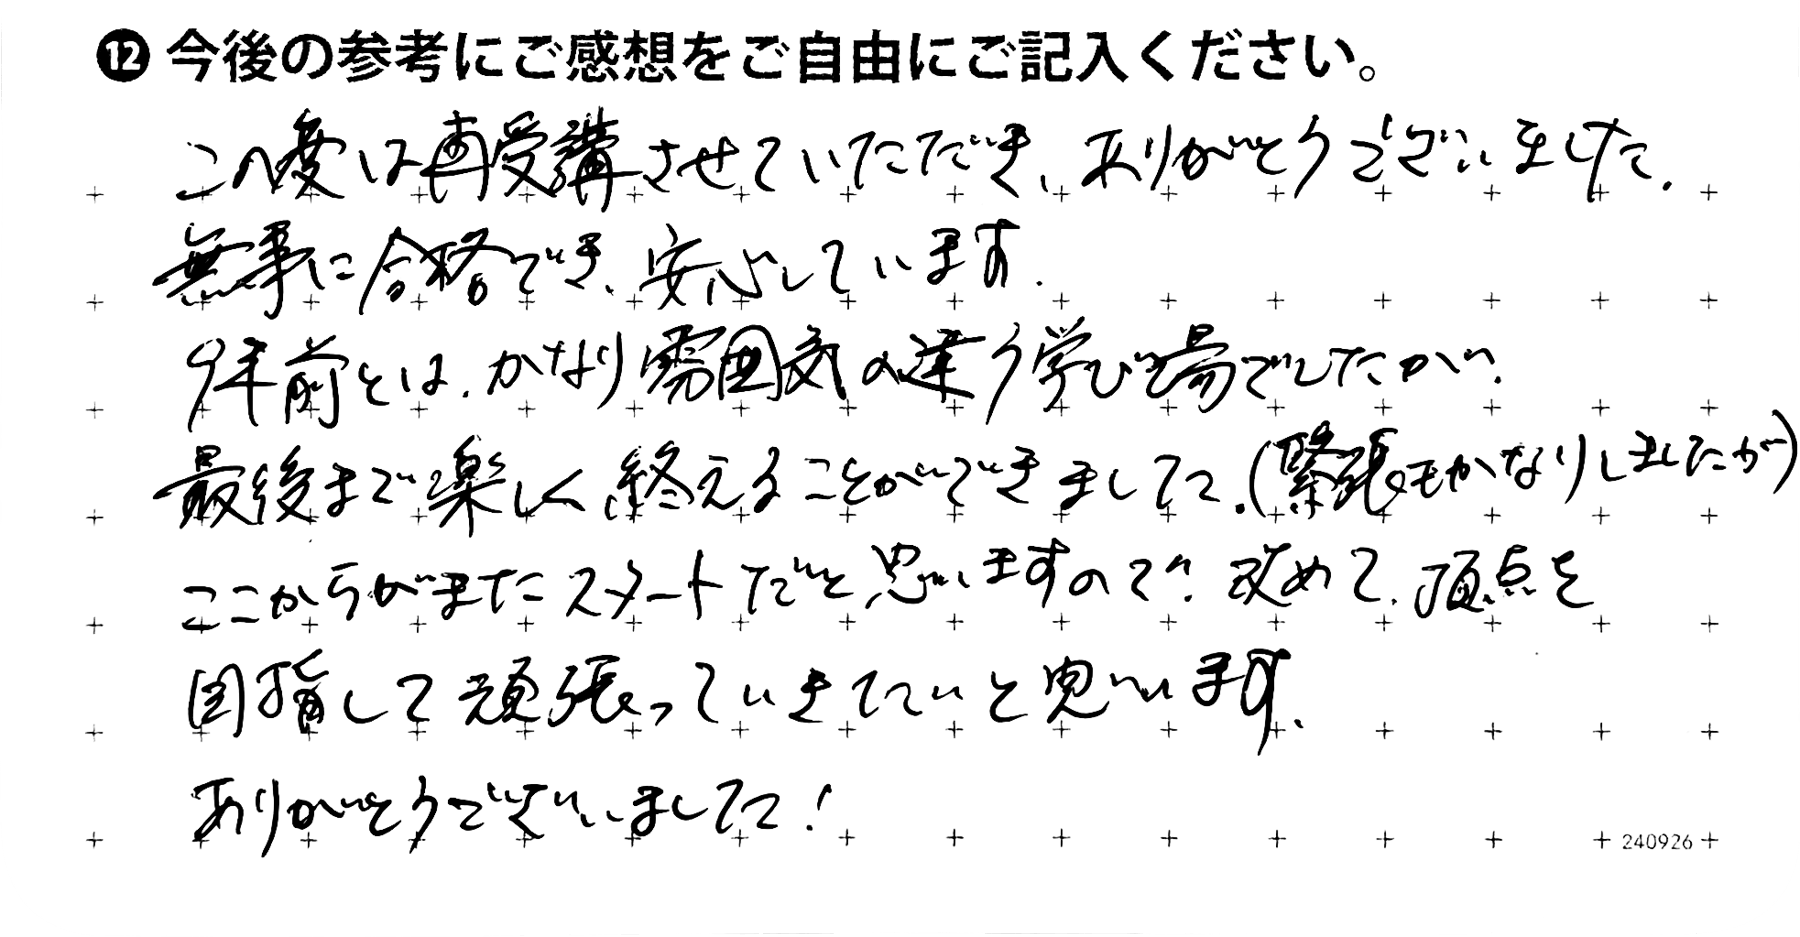 ⓬ 今後の参考にご感想をご自由にご記入ください。
この度は再受講させていただき、ありがとうございました。
無事に合格でき、安心しています。
9年前とは、かなり雰囲気の違う学び場でしたが、
最後まで楽しく終えることができました。(緊張もかなりしましたが)
ここからがまたスタートだと思いますので、改めて、頂点を
目指して頑張っていきたいと思います。
ありがとうございました!
240926